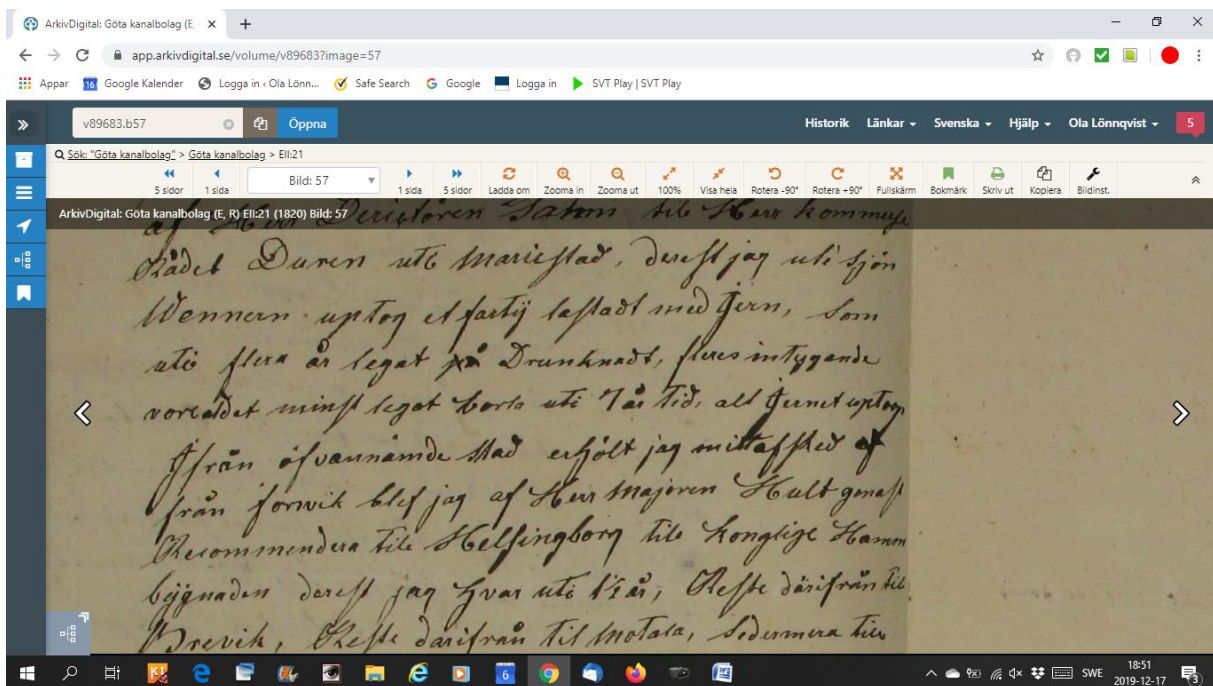 ArkivDigital: Göta kanalbolag (E,
app.arkivdigital.se/volume/v89683?image=57
Appar Google Kalender Logga in ‹ Ola Lönn... Safe Search Google Logga in SVT Play | SVT Play
v89683.b57 Öppna Historik Länkar Svenska Hjälp Ola Lönnqvist 5
Sök: "Göta kanalbolag" > Göta kanalbolag > EII:21
5 sidor 1 sida Bild: 57 1 sida 5 sidor Ladda om Zooma in Zooma ut 100% Visa hela Rotera -90° Rotera +90° Fullskärm Bokmärk Skriv ut Kopiera Bildinst.
ArkivDigital: Göta kanalbolag (E, R) EII:21 (1820) Bild: 57
af Herr Sahm till Herr Kommerse
Rådet Duren uti Mariestad, derest jag uti sjön
Wennern uptog et fartÿ lastadt med Jern, som
uti flera år legat på Drunknadt, fleres intygande
vore det minst legat borta uti 7 år tid, alt Jernet uptogs
Ifrån ofvannämde stad erhölt jag mitt afsked
från forvik blef jag af Herr Majoren Hult genast
Recommendera till Helsingborg till Konglige Hamn
bÿgnaden derest jag Hvar uti 1½ år, Reste därifrån till
Brevik, Reste därifrån till Motala, Sedermera till
18:51
SWE
2019-12-17
3